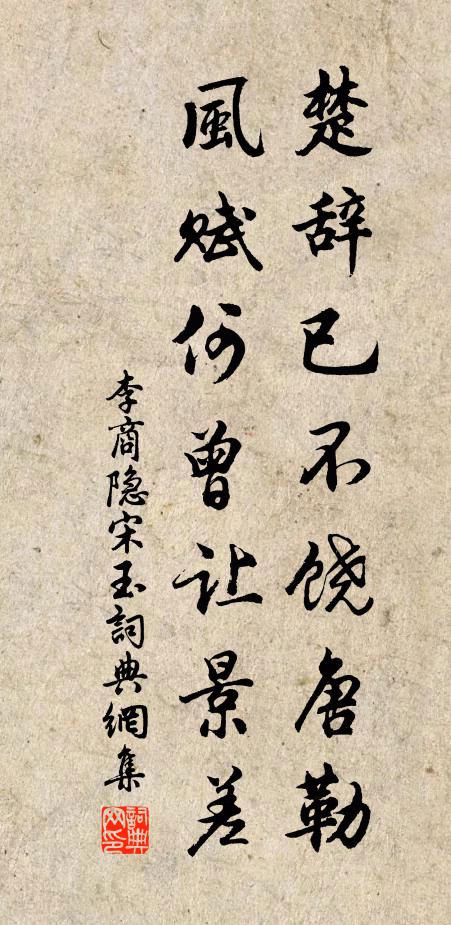 楚辞已不饶唐勒
風赋何曾让景差
李商隐宋玉詞典網集
詞典網印